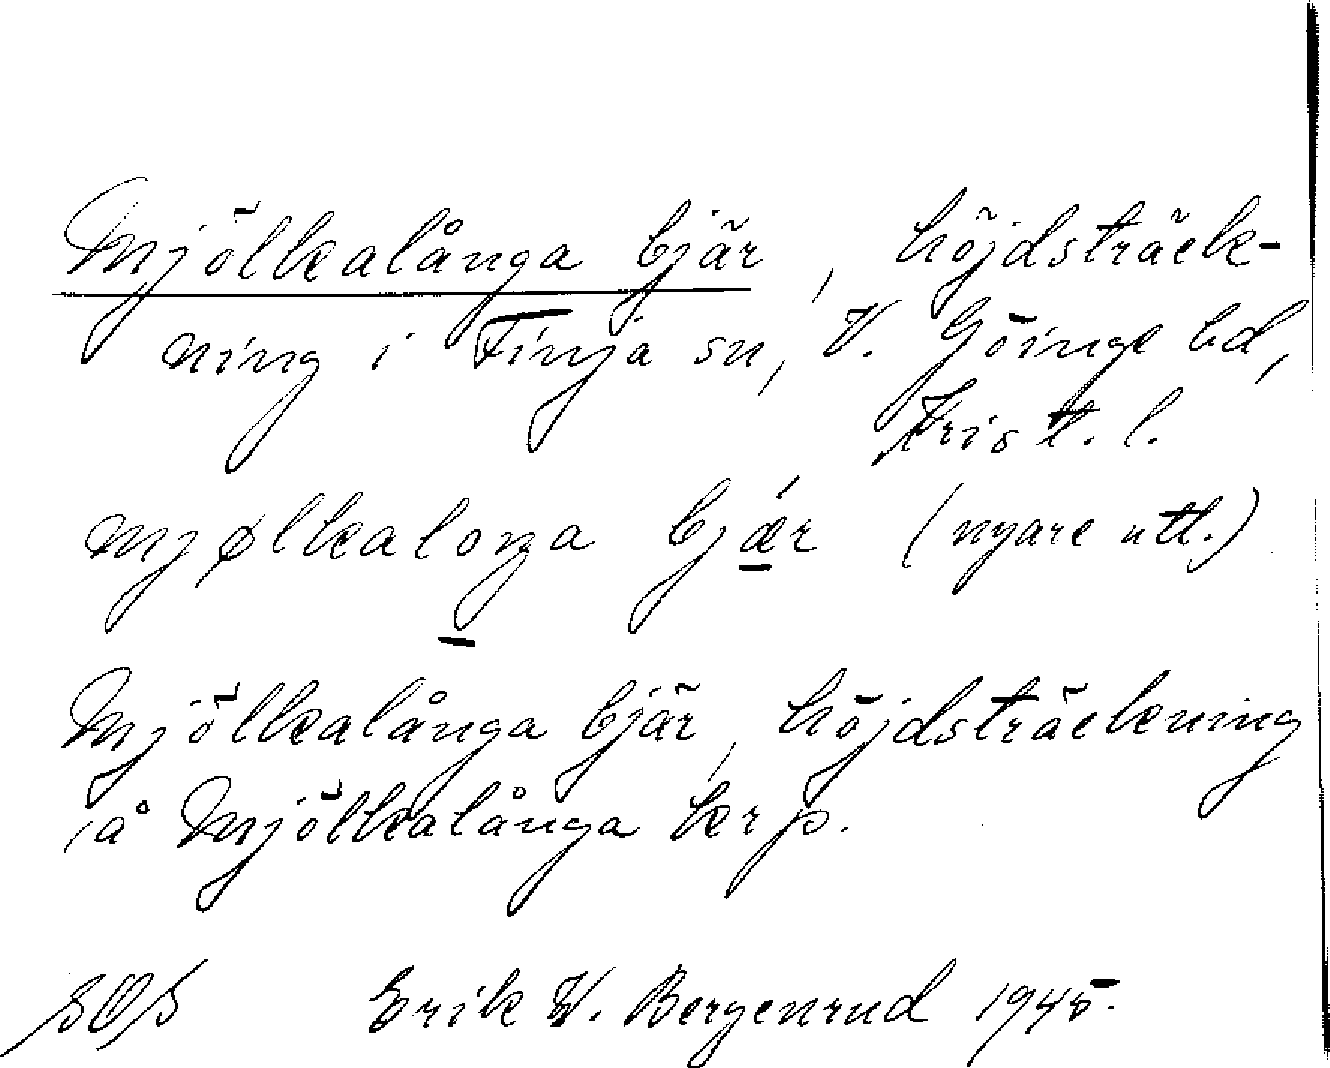 Mjölkalånga bjär, höjdsträck-
ning i Finja sn, V. Göinge hd,
Krist. l.
mjølkaloŋa bjǽr (nyare utt.)
Mjölkalånga bjär, höjdsträckning
å Mjölkalånga krp.
SOS Erik W. Bergenrud 1945.